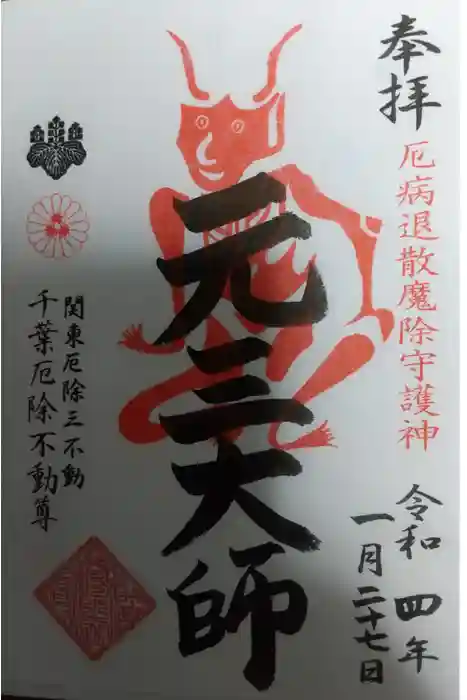 奉拝
厄病退散魔除守護神
令和四年
一月二十七日
元三大師
関東厄除三不動
千葉厄除不動尊